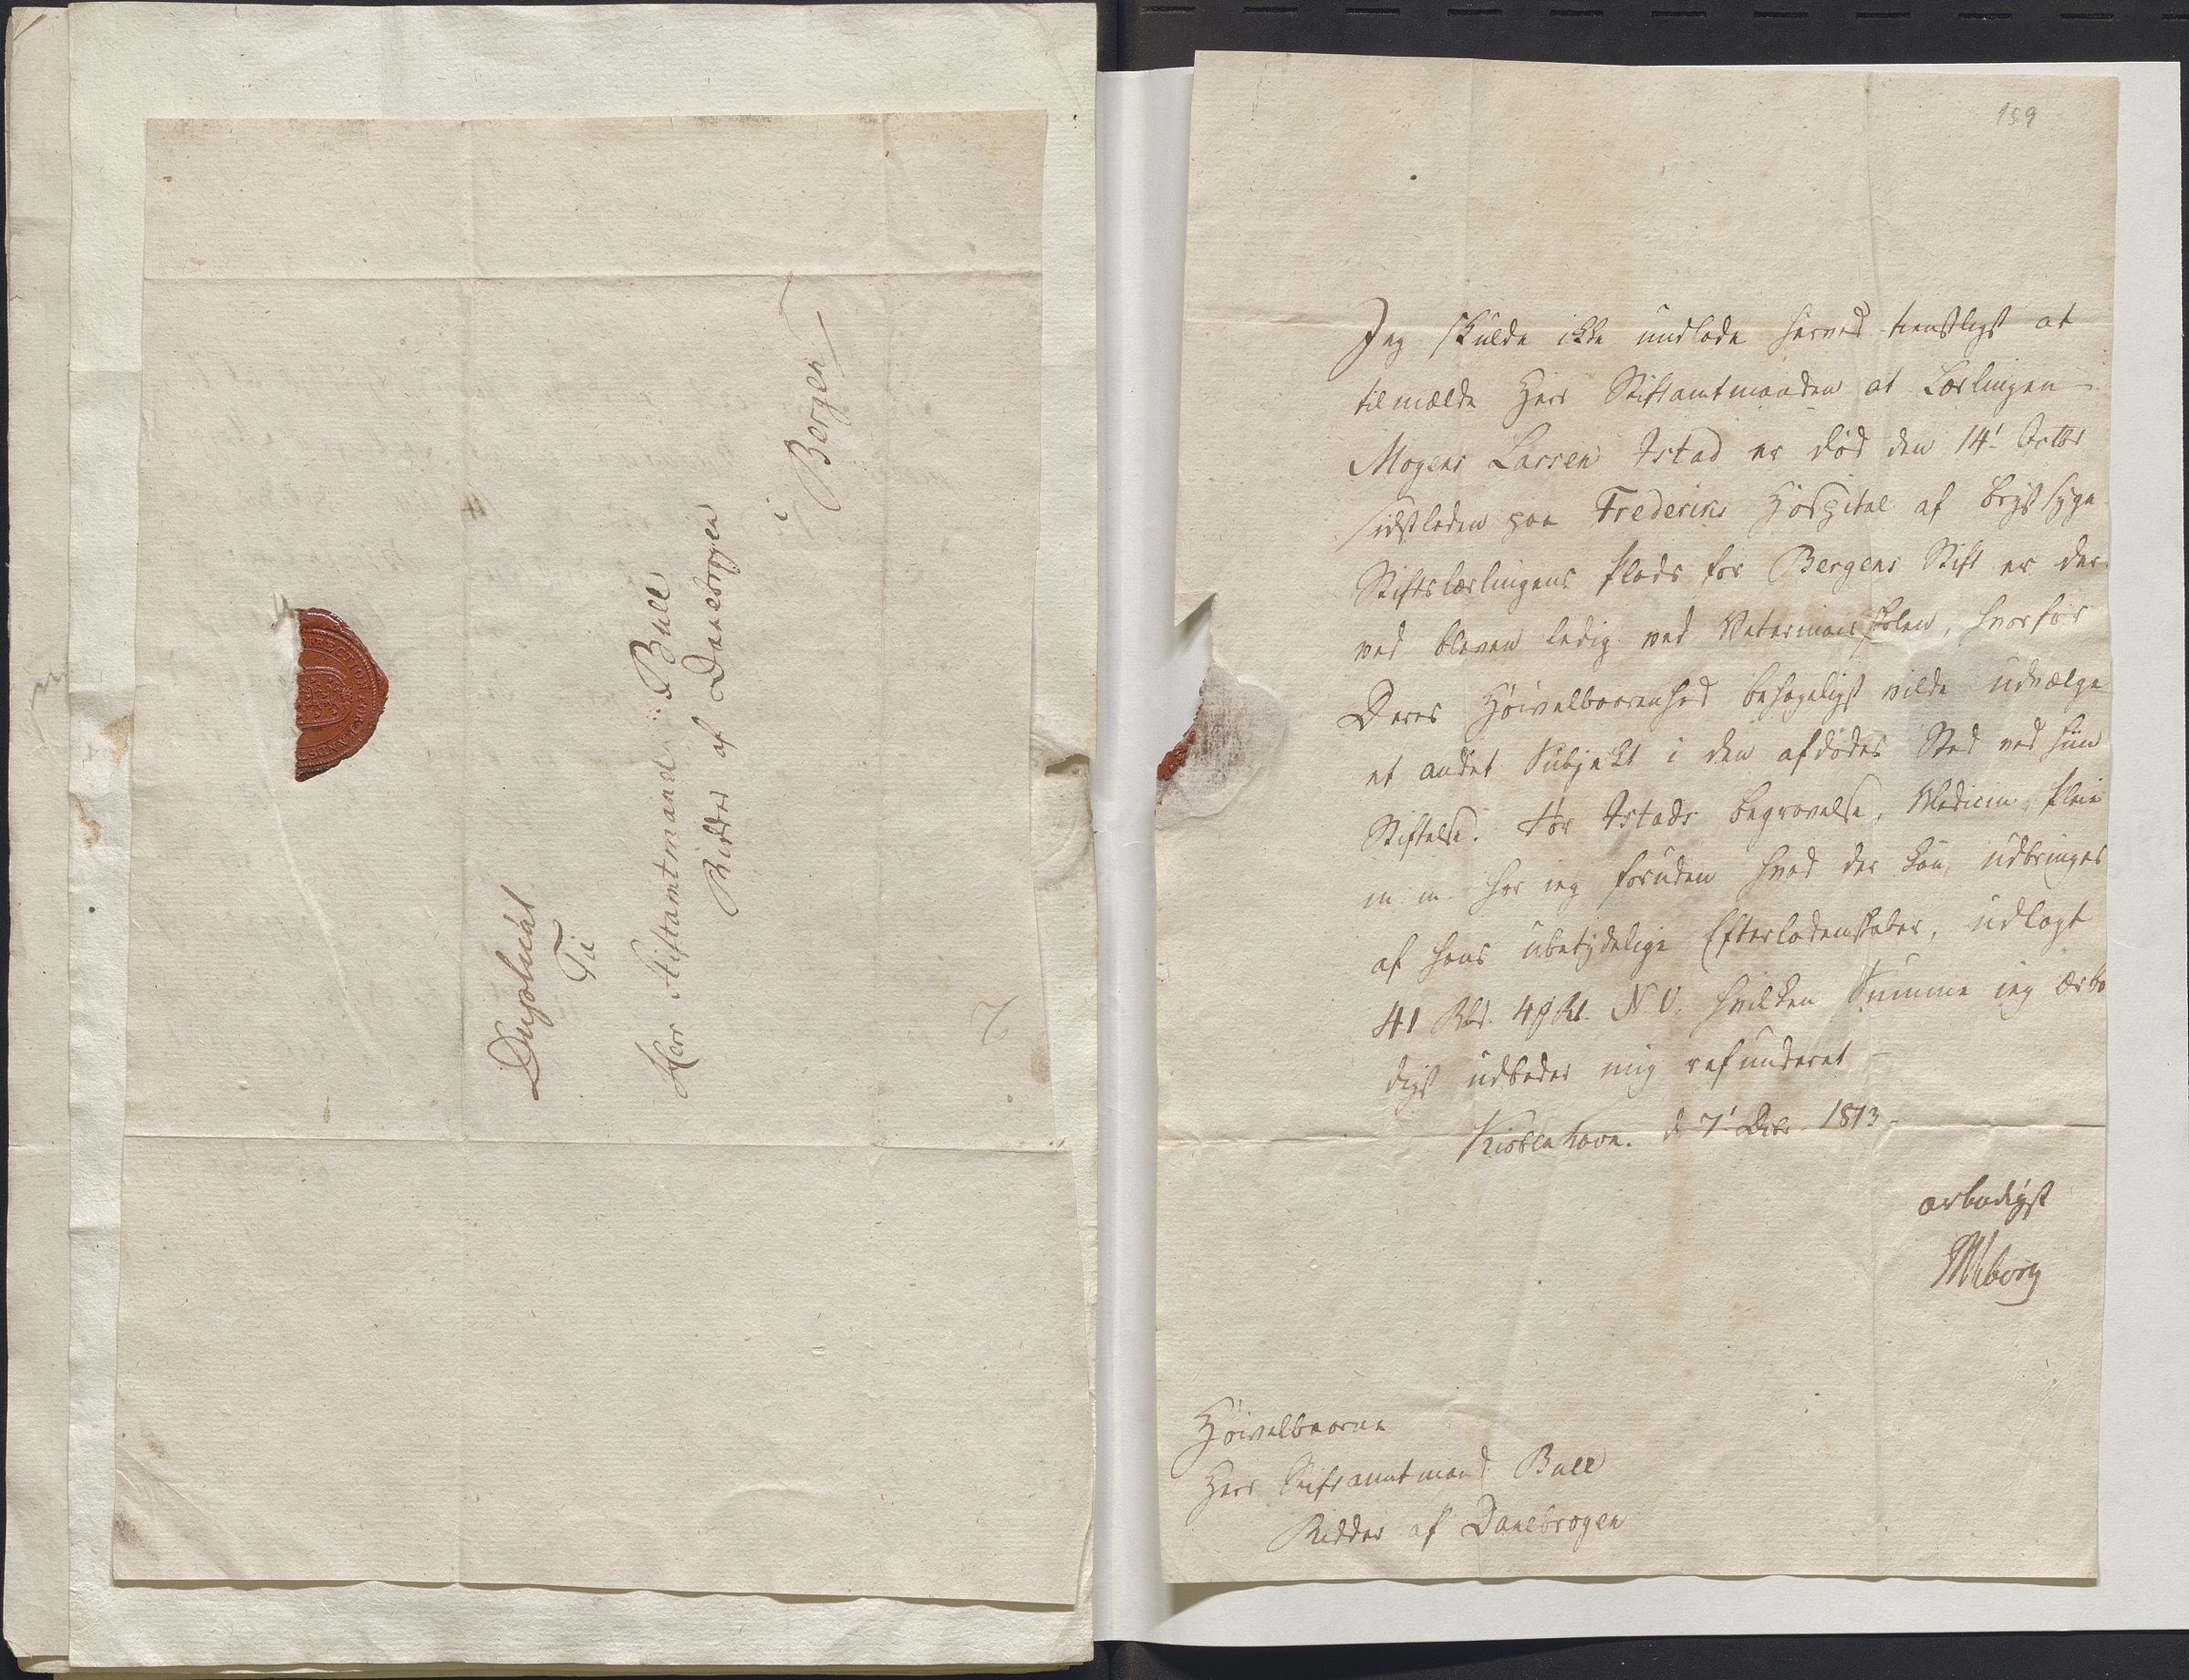 Duplicat
Til
Herr Stiftamtmand Bull
Ridder af Danebrogen
i
Bergen
159
Jeg skulde ikke undlade herved tienstligst at
tilmælde Herr Stiftamtmanden at Lærlingen
Mogens Larsen Istad er død den 14' Octbr
sidstleden paa Frederiks Hospital af Brystsyge
Stiftslærlingens Plads for Bergens Stift er der-
ved bleven ledig ved Veterinairskolen, hvorfor
Deres Høivelbaarenhed behageligst vilde udvælge
et andet Subjekt i den afdødes Sted ved hiin
Stiftelse. For Istads Begravelse, Medicin, Pleie
m. m. har ieg foruden hvad der kan udbringes
af hans ubetydelige Efterladenskaber, udlagt
41 Rbd. 48 N. V. hvilken Summe ieg ærbø
digst udbeder mig refunderet -
Kiøbenhavn. d 7' Dcbr. 1813 -
ærbødigst
Viborg
Høivelbaarne
Herr Stiftamtmand Bull
Ridder af Danebrogen